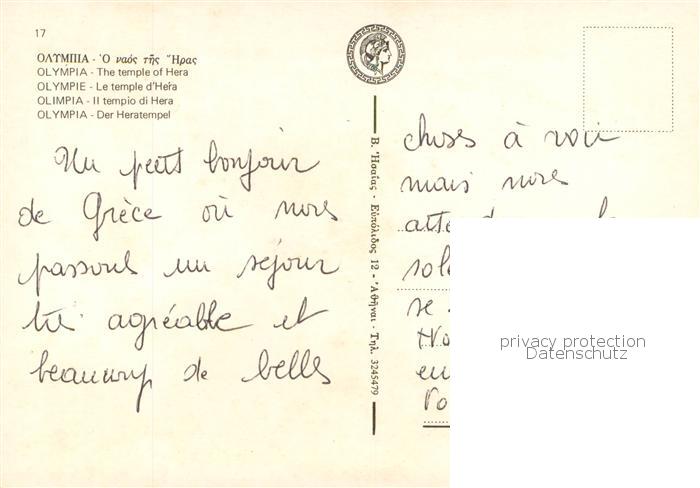 17
ΟΛΥΜΠΙΑ - Ὁ ναός τῆς Ἥρας
OLYMPIA - The temple of Hera
OLYMPIE - Le temple d'Hera
OLIMPIA - Il tempio di Hera
OLYMPIA - Der Heratempel
Un petit bonjour
de Grèce où nous
passons un séjour
très agréable et
beaucoup de belles
Β. Ἡσαΐας - Εὐπόλιδος 12 - Ἀθῆναι - Τηλ. 3245479
choses à voir
mais nous
se
privacy protection
Datenschutz